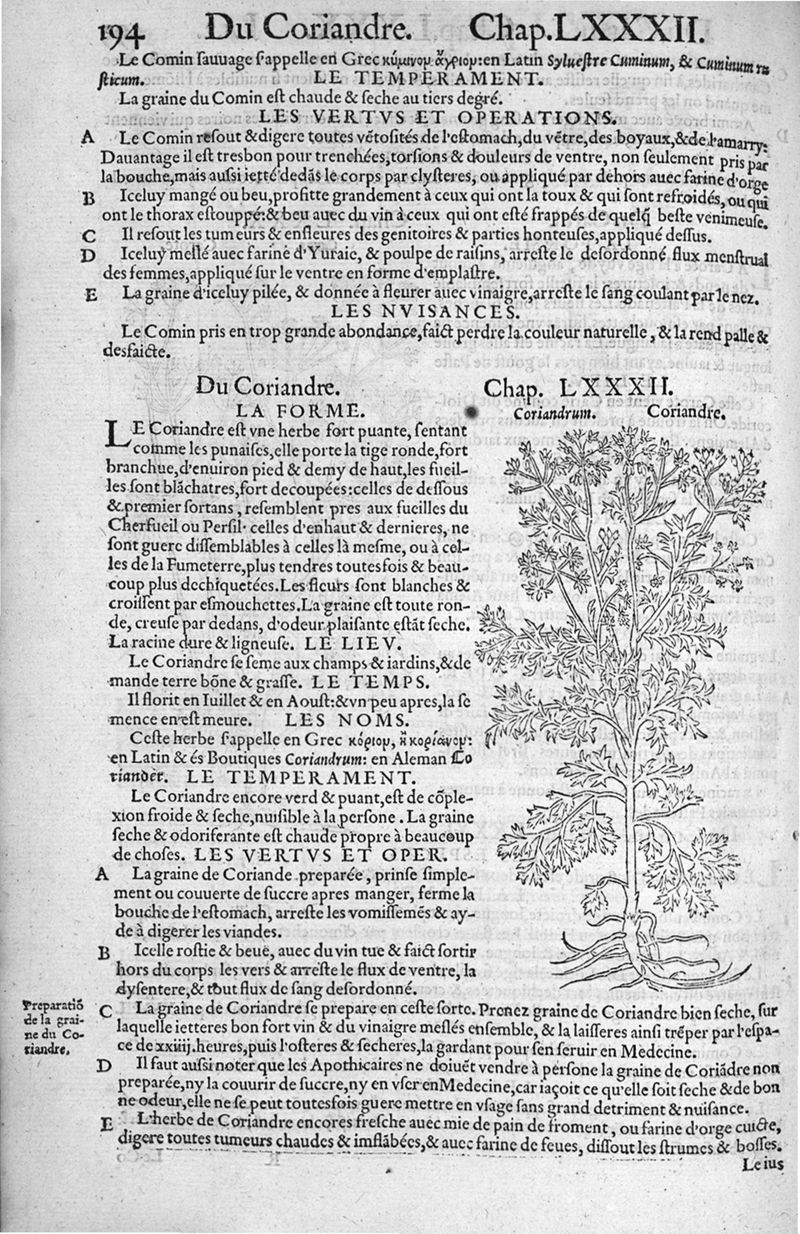 194 Du Coriandre. Chap. LXXXII.
Le Comin ſauuage s'appelle en Grec κύμινομ ἄγριομ: en Latin Sylueſtre Cuminum, & Cuminum ru
ſticum. LE TEMPERAMENT.
La graine du Comin eſt chaude & ſeche au tiers degré.
LES VERTVS ET OPERATIONS.
A Le Comin reſout & digere toutes vẽtoſités de l'eſtomach, du vẽtre, des boyaux, & de l'amarry.
Dauantage il eſt tresbon pour trenchées, torſions & douleurs de ventre, non ſeulement pris par
la bouche, mais auſsi ietté dedãs le corps par clyſteres, ou appliqué par dehors auec farine d'orge
B Iceluy mangé ou beu, profitte grandement à ceux qui ont la toux & qui ſont refroidés, ou qui
ont le thorax eſtouppé: & beu auec du vin à ceux qui ont eſté frappés de quelq̃ beſte venimeuſe.
C Il reſout les tumeurs & enfleures des genitoires & parties honteuſes, appliqué deſſus.
D Iceluy meſlé auec farine d'Yuraie, & poulpe de raiſins, arreſte le deſordonné flux menſtrual
des femmes, appliqué ſur le ventre en forme d'emplaſtre.
E La graine d'iceluy pilée, & donnée à fleurer auec vinaigre, arreſte le ſang coulant par le nez.
LES NVISANCES.
Le Comin pris en trop grande abondance, faict perdre la couleur naturelle, & la rend palle &
desfaicte.
Du Coriandre. Chap. LXXXII.
LA FORME.
Coriandrum. Coriandre.
LE Coriandre eſt vne herbe fort puante, ſentant
comme les punaiſes, elle porte la tige ronde, fort
branchue, d'enuiron pied & demy de haut, les fueil-
les ſont blãchatres, fort decoupées: celles de deſſous
& premier ſortans, reſemblent pres aux fueilles du
Cherfueil ou Perſil. celles d'enhaut & dernieres, ne
ſont guere diſſemblables à celles là meſme, ou à cel-
les de la Fumeterre, plus tendres toutesfois & beau-
coup plus dechiquetées. Les fleurs ſont blanches &
croiſſent par eſmouchettes. La graine eſt toute ron-
de, creuſe par dedans, d'odeur plaiſante eſtãt ſeche.
La racine dure & ligneuſe. LE LIEV.
Le Coriandre ſe ſeme aux champs & iardins, & de
mande terre bõne & graſſe. LE TEMPS.
Il florit en Iuillet & en Aouſt: & vn peu apres, la ſe
mence en eſt meure. LES NOMS.
Ceſte herbe s'appelle en Grec κόριομ, ἢ κορίανομ:
en Latin & és Boutiques Coriandrum: en Aleman Co
riander. LE TEMPERAMENT.
Le Coriandre encore verd & puant, eſt de cõple-
xion froide & ſeche, nuiſible à la perſone. La graine
ſeche & odoriferante eſt chaude propre à beaucoup
de choſes. LES VERTVS ET OPER.
A La graine de Coriande preparée, prinſe ſimple-
ment ou couuerte de ſuccre apres manger, ferme la
bouche de l'eſtomach, arreſte les vomiſſemẽs & ay-
de à digerer les viandes.
B Icelle roſtie & beuë, auec du vin tue & faict ſortir
hors du corps les vers & arreſte le flux de ventre, la
dyſentere, & tout flux de ſang deſordonné.
Preparatiõ
de la grai-
ne du Co-
riandre.
C La graine de Coriandre ſe prepare en ceſte ſorte. Prenez graine de Coriandre bien ſeche, ſur
laquelle ietteres bon fort vin & du vinaigre meſlés enſemble, & la laiſſeres ainſi trẽper par l'eſpa-
ce de xxiiij. heures, puis l'oſteres & ſecheres, la gardant pour s'en ſeruir en Medecine.
D Il faut auſsi noter que les Apothicaires ne doiuẽt vendre à perſone la graine de Coriãdre non
preparée, ny la couurir de ſuccre, ny en vſer en Medecine, car iaçoit ce qu'elle ſoit ſeche & de bon
ne odeur, elle ne ſe peut toutesfois guere mettre en vſage ſans grand detriment & nuiſance.
E L'herbe de Coriandre encores freſche auec mie de pain de froment, ou farine d'orge cuicte,
digere toutes tumeurs chaudes & imflãbées, & auec farine de feues, diſſout les ſtrumes & boſſes.
Le ius